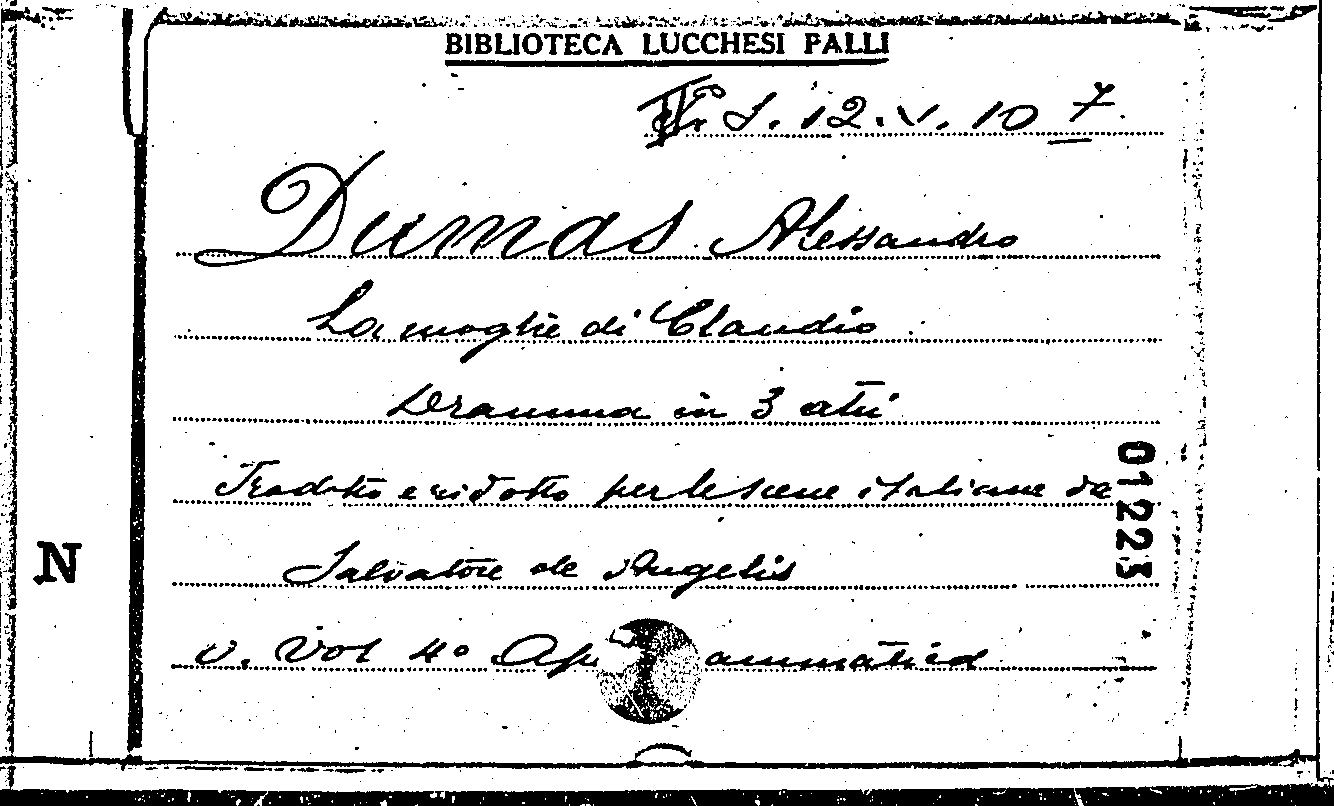 BIBLIOTECA LUCCHESI PALLI
S. 12. V. 10 7
Dumas Alessandro
La moglie di Claudio
Dramma in 3 atti
Tradotto e ridotto per le scene italiane da
Salvatore de Angelis
v. Vol 4º
01223
N